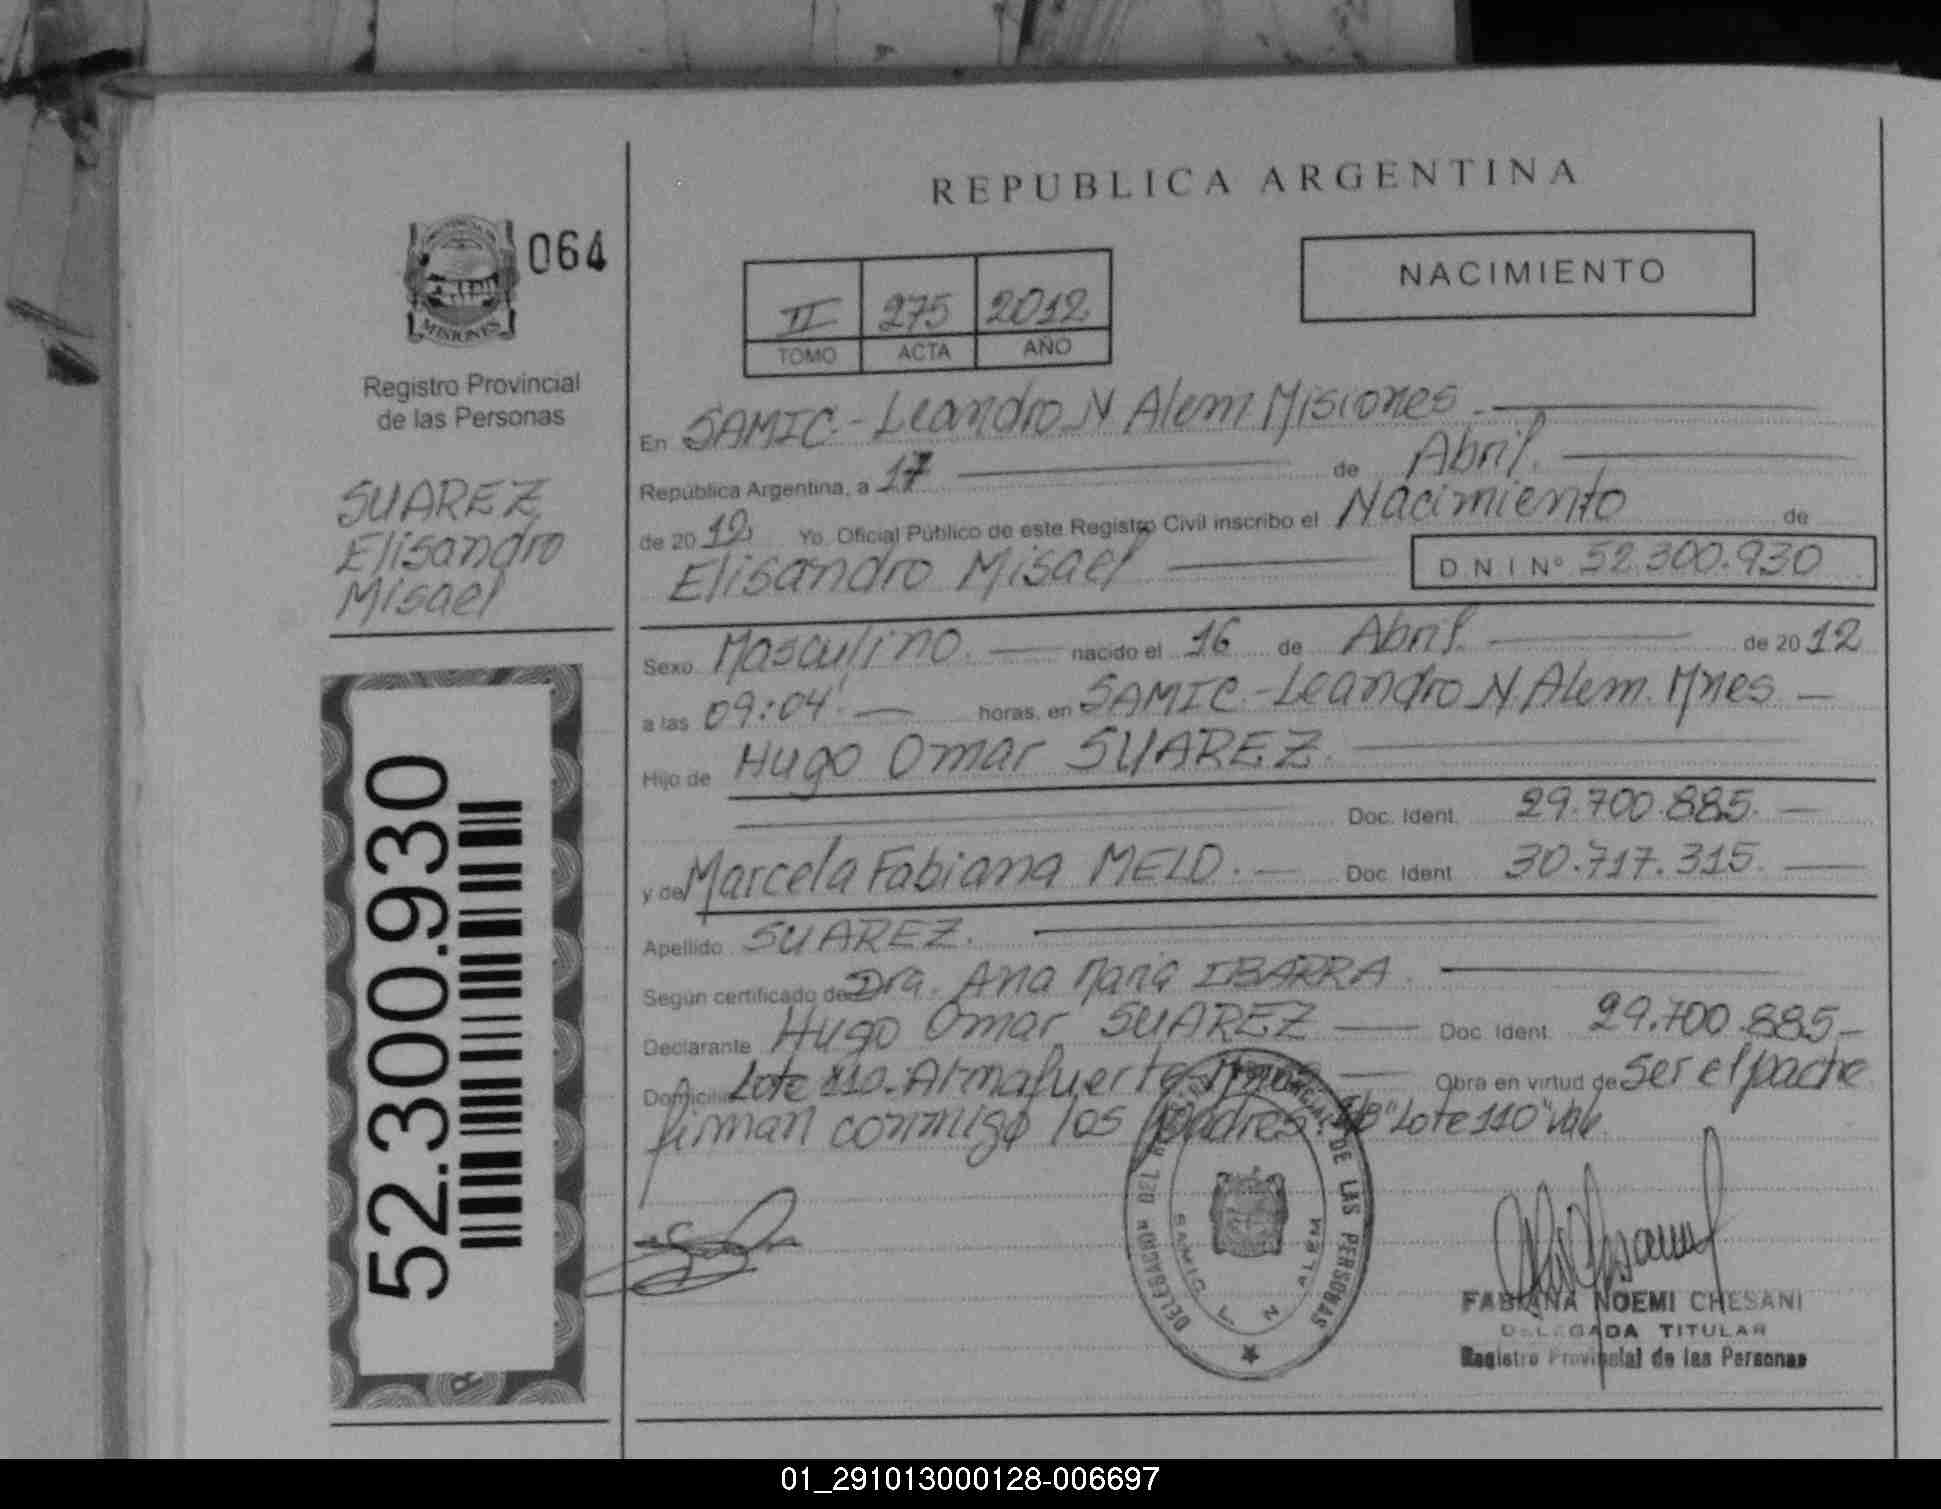 REPUBLICA ARGENTINA
064
MISIONES
Registro Provincial
de las Personas
NACIMIENTO
II 275 2012
TOMO ACTA AÑO
SUAREZ
Elisandro
Misael
52.300.930
En SAMIC - Leandro N Alem Misiones
República Argentina, a 17 de Abril.
de 2012 Yo, Oficial Público de este Registro Civil inscribo el Nacimiento de
Elisandro Misael D N I Nº 52.300.930
Sexo Masculino. nacido el 16 de Abril. de 2012
a las 09:04' horas, en SAMIC - Leandro N. Alem. Mnes
Hijo de Hugo Omar SUAREZ.
Doc. Ident. 29.700.885.
y de Marcela Fabiana MELO. Doc. Ident 30.717.315.
Apellido SUAREZ.
Según certificado de Dra. Ana Maria IBARRA.
Declarante Hugo Omar SUAREZ Doc. Ident. 29.700.885
Domicilio Lote 110. Almafuerte Mnes Obra en virtud de ser el padre
firman conmigo los padres. S/B "Lote 110" Vale
DELEGACION DEL REGISTRO PROVINCIAL DE LAS PERSONAS
SAMIC L N ALEM
FABIANA NOEMI CHESANI
DELEGADA TITULAR
Registro Provincial de las Personas
01_291013000128-006697